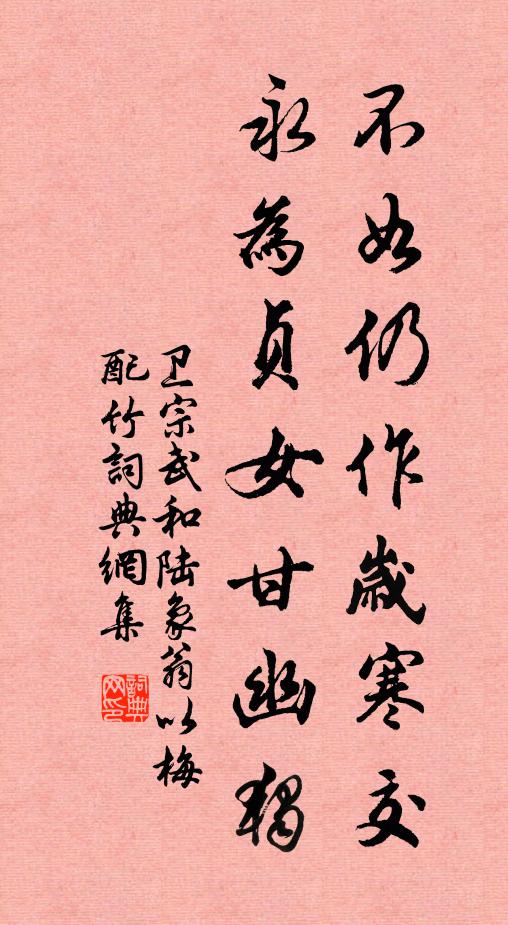 不如仍作歲寒交
永為貞女甘幽獨
卫宗武和陆象翁以梅
配竹詞典網集
詞典网印